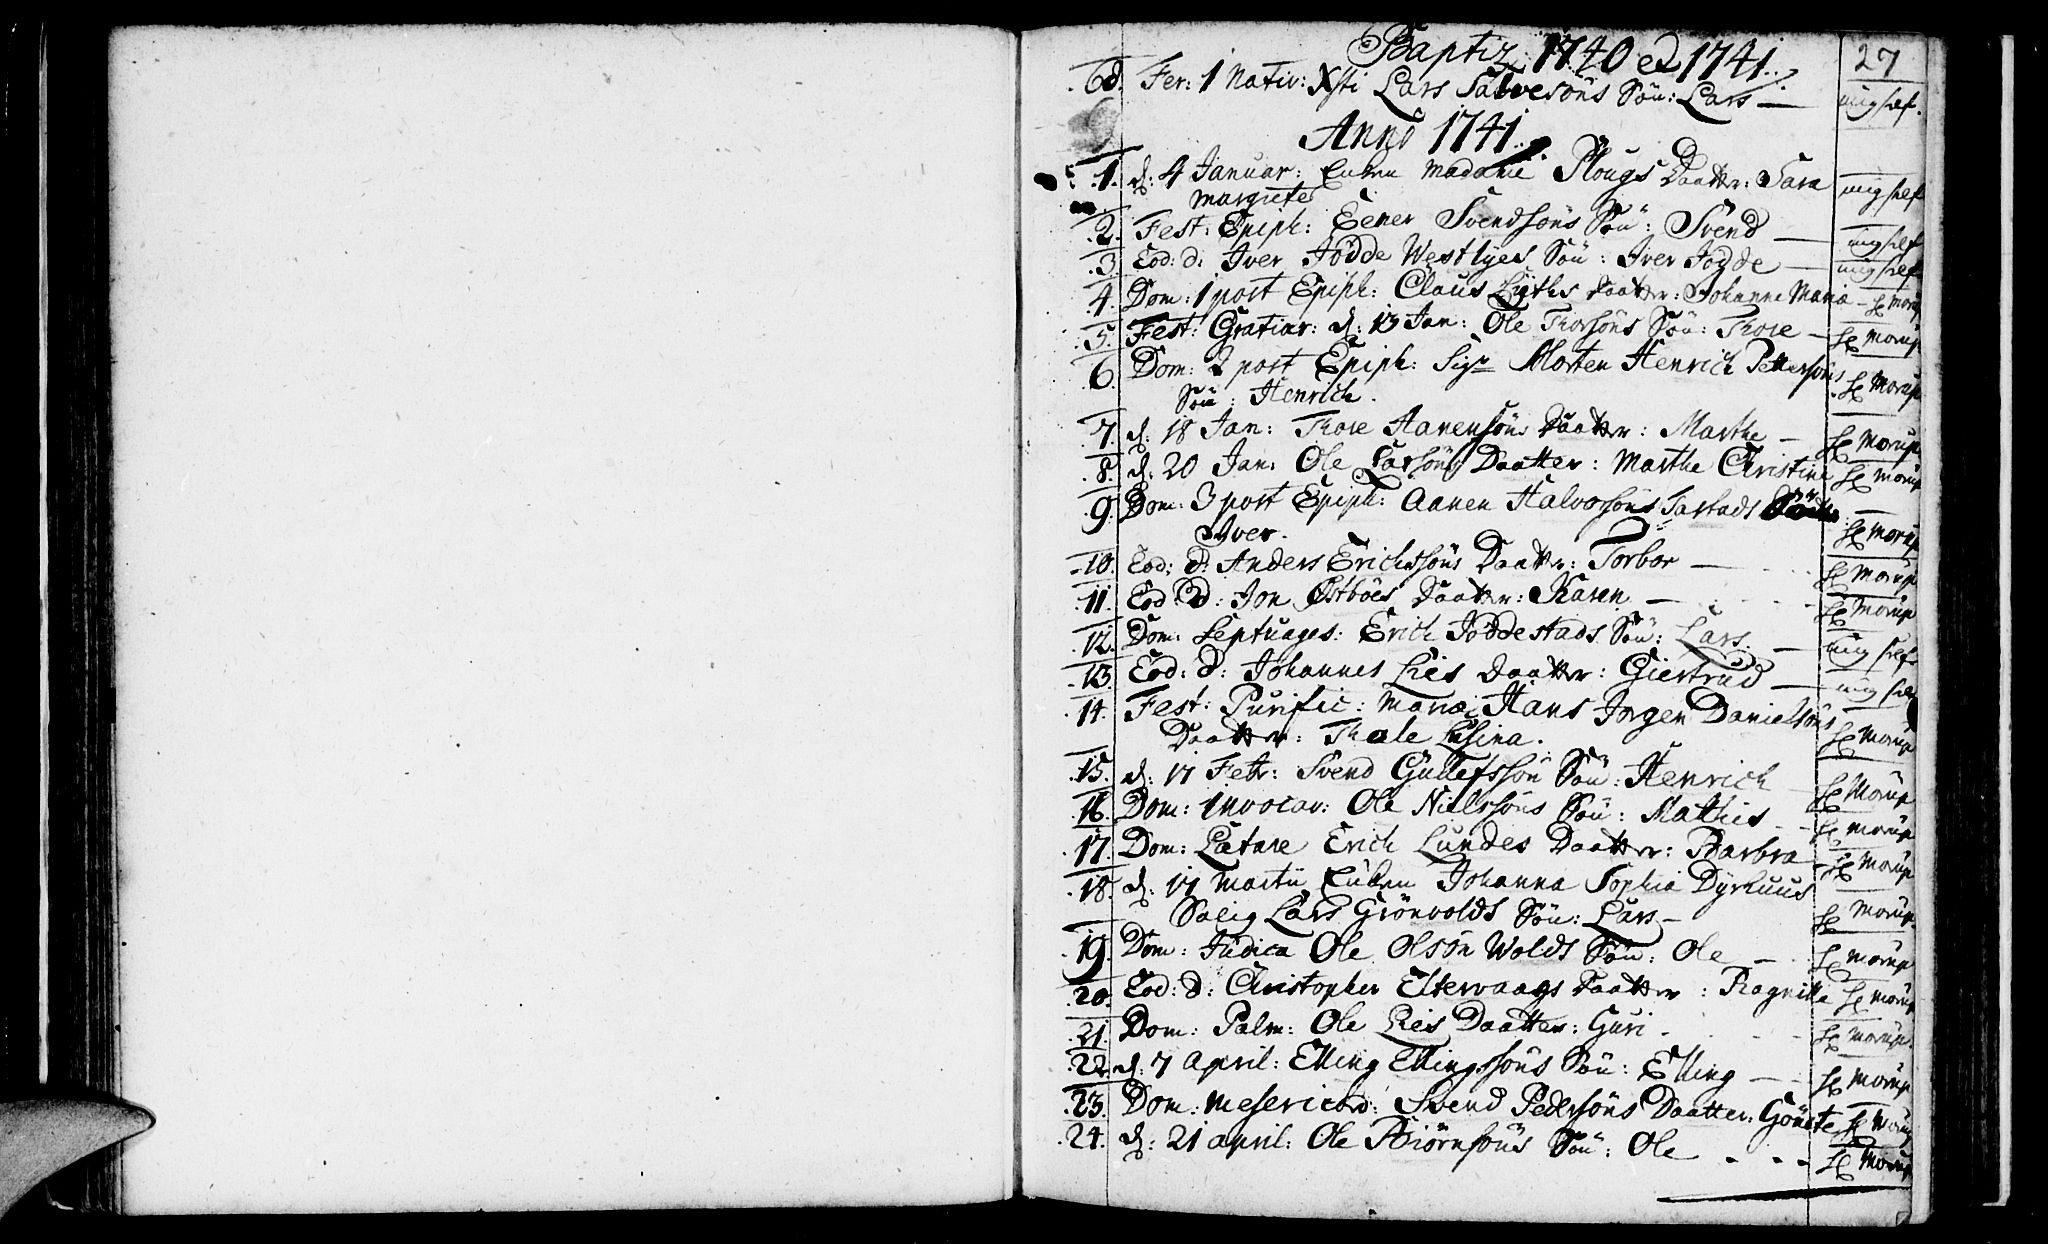 Baptiz: 1740 et 1741. 27
6d. Fer: 1 Nativ: Xsti Lars Salvesöns Sön: Lars — mig self.
Anno 1741.
1. d: 4 Januar: Enken Madame Plougs Daatter: Sara mig self
Margrete
2. Fest: Epiph: Eener Svendsöns Sön: Svend — mig self
3. Eod: d: Iver Jödde Westlyes Sön: Iver Jödde — mig self
4. Dom: 1 post Epiph: Claus Lyths Daatter: Johanna Maria — H Morup
5. Fest: Gratiar: d: 13 Jan: Ole Thorsöns Sön: Thore — H Morup.
6 Dom: 2 post Epiph: Sigr Morten Henrich Pettersöns H Morup
Sön: Henrich.
7. d: 18 Jan: Thore Aanensöns Daatter: Marthe — H Morup
8. d: 20 Jan: Ole Larsöns Daatter: Marthe Christina H Morup
9. Dom: 3 post Epiph: Aanen Halvorsöns Tastads H Morup
Iver.
10. Eod: d: Anders Erichssöns Daatter: Torbor — H Morup
11. Eod: d: Jon Östböes Daatter: Karen — H Morup
12. Dom: Septuages: Erich Jöddestads Sön: Lars. — mig self
13. Eod: d: Johannes Lies Daatter: Giertrud — mig self
14. Fest: Purific: Mariæ Hans Jörgen Danielsöns H Morup
Daatter: Thale Elsina.
15. d: 17 Febr: Svend Gullefssön Sön: Henrich — H Morup
16. Dom: Invocav: Ole Nielssöns Sön: Mathies — H Morup
17. Dom: Lætare Erich Lundes Daatter: Barbra — H Morup
18. d: 17 Martii Enken Johanna Sophia Dyrhuus
Salig Lars Grönvolds Sön: Lars — H Morup.
19. Dom: Judica Ole Olsön Wolds Sön: Ole — H Morup
20. Eod: d: Christopher Eltervaags Daatter: Ragnille H Morup
21. Dom: Palm: Ole Lies Daatter: Guri - H Morup.
22. d: 7 April: Elling Ellingssöns Sön: Elling — H Morup
23. Dom: Mesericord: Svend Pedersöns Daatter: H Morup
24. d: 21 April: Ole Biörnsöns Sön: Ole - - - H Morup